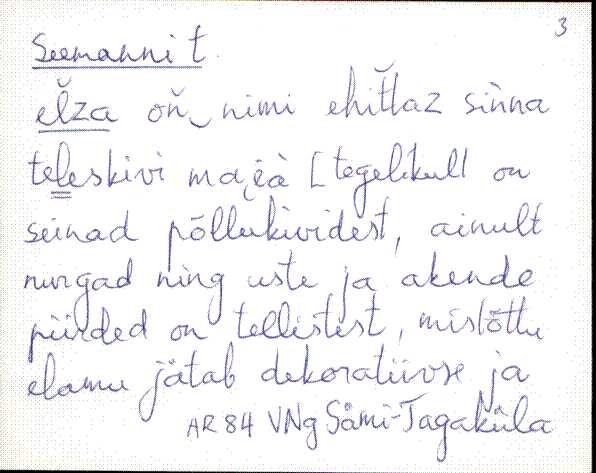 3
Seemanni t.
elˇza oň‿nimi ehit̆laz siǹna
teleskivi maj̯à [tegelikult on
seinad põllukividest, ainult
nurgad ning uste ja akende
piirded on tellistest, mistõttu
elamu jätab dekoratiivse ja
AR 84 VNg Sämi-Tagaküla